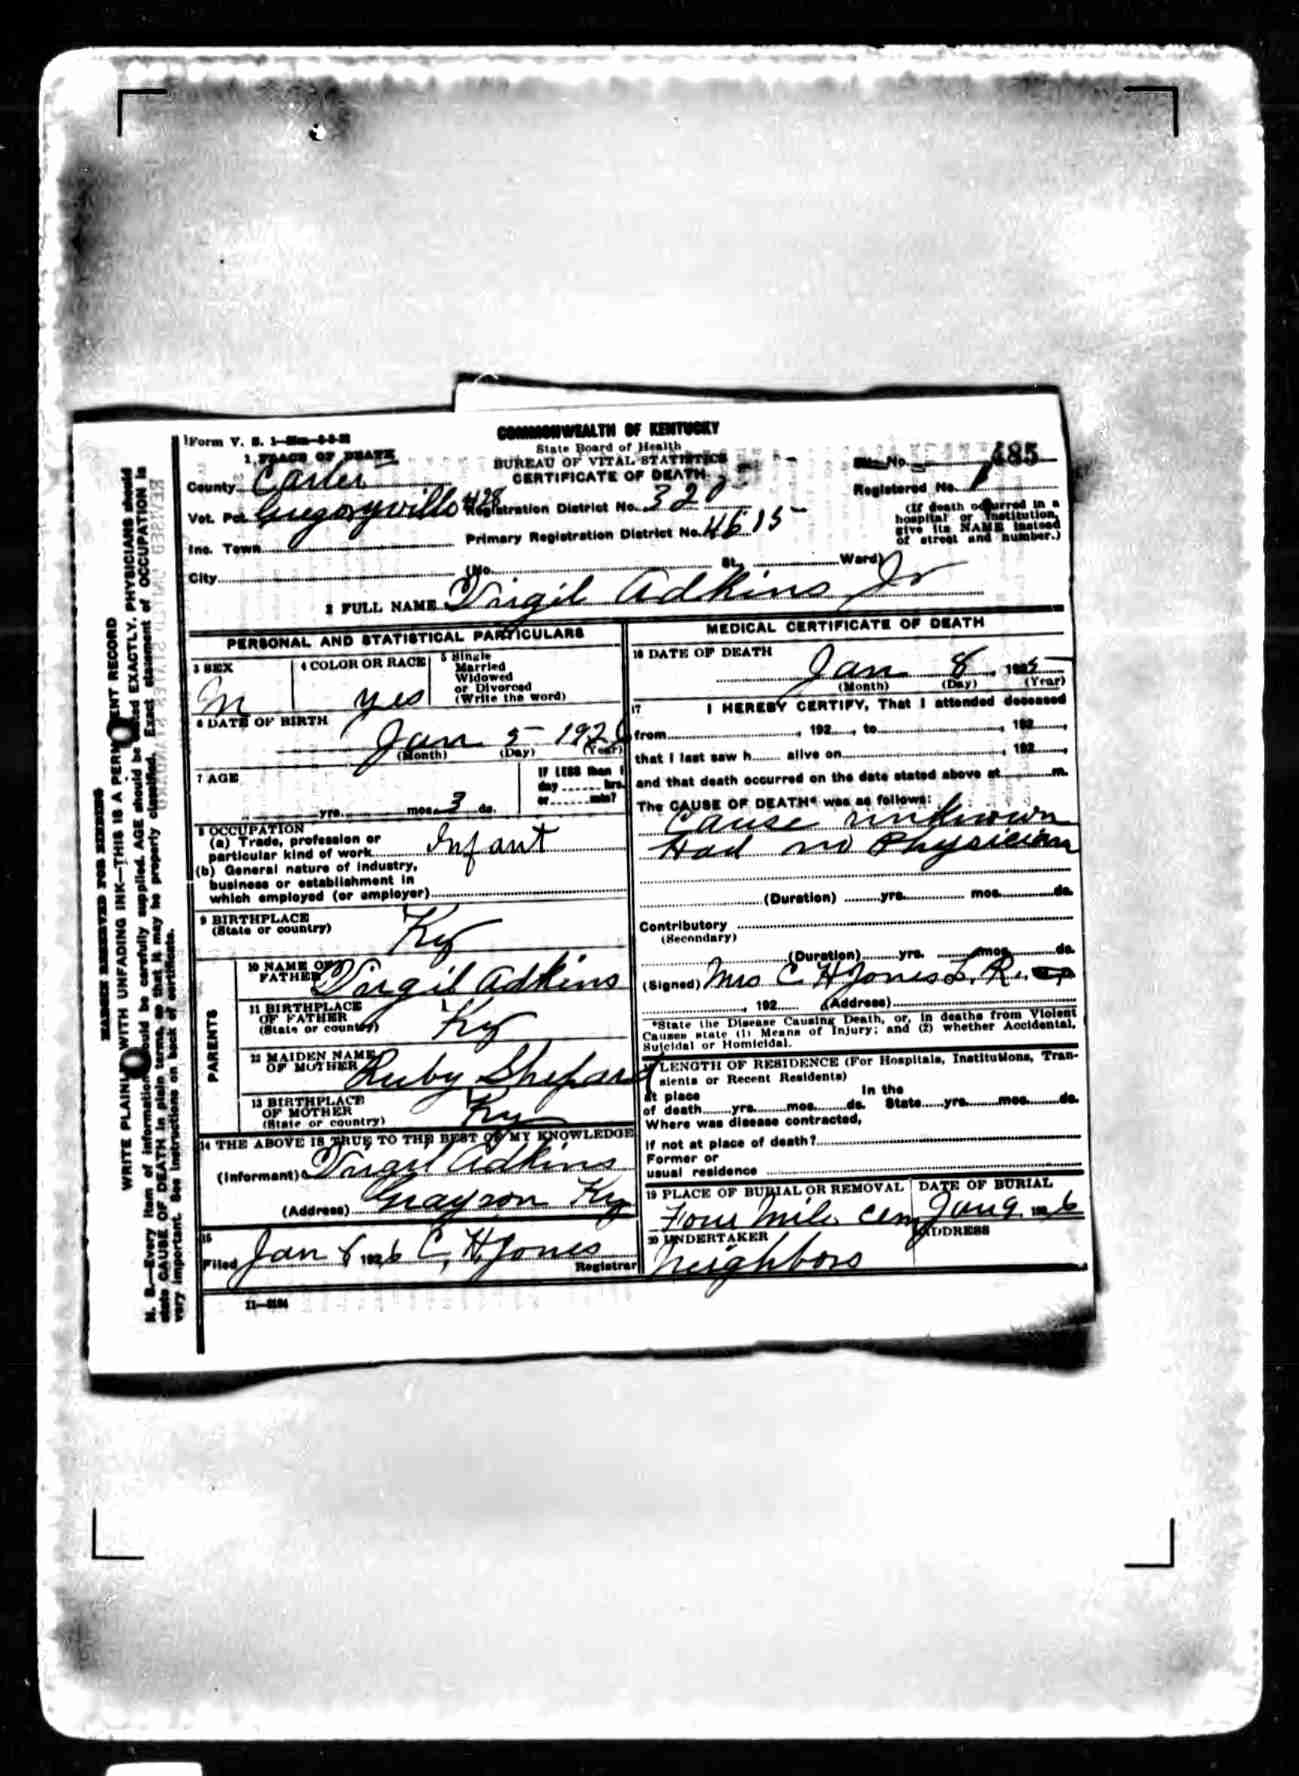 Form V. S. 1
COMMONWEALTH OF KENTUCKY
State Board of Health
BUREAU OF VITAL STATISTICS
CERTIFICATE OF DEATH
1 PLACE OF DEATH
File No. 485
County Carter
Registered No. 1
Vot. Pct. Gregoryville 428 Registration District No. 320
(If death occurred in a hospital or institution, give its NAME instead of street and number.)
Inc. Town Primary Registration District No. 4615
City (No. St. Ward)
2 FULL NAME Virgil Adkins Jr
PERSONAL AND STATISTICAL PARTICULARS
3 SEX M
4 COLOR OR RACE yes
5 Single
Married
Widowed
or Divorced
(Write the word)
6 DATE OF BIRTH
Jan 5 1926
(Month) (Day) (Year)
7 AGE
yrs. mos. 3 ds.
IF LESS than 1
day hrs.
or min?
8 OCCUPATION
(a) Trade, profession or
particular kind of work Infant
(b) General nature of industry,
business or establishment in
which employed (or employer)
9 BIRTHPLACE
(State or country) Ky
PARENTS
10 NAME OF
FATHER Virgil Adkins
11 BIRTHPLACE
OF FATHER
(State or country) Ky
12 MAIDEN NAME
OF MOTHER Ruby Shepard
13 BIRTHPLACE
OF MOTHER
(State or country) Ky
14 THE ABOVE IS TRUE TO THE BEST OF MY KNOWLEDGE
(Informant) Virgil Adkins
(Address) Grayson Ky
15
Filed Jan 8 1926 C. H. Jones
Registrar
11—3184
MEDICAL CERTIFICATE OF DEATH
16 DATE OF DEATH
Jan 8 1925
(Month) (Day) (Year)
17 I HEREBY CERTIFY, That I attended deceased
from , 192 , to , 192 ,
that I last saw h alive on , 192 ,
and that death occurred on the date stated above at m.
The CAUSE OF DEATH* was as follows:
Cause unknown
Had no Physician
(Duration) yrs. mos. ds.
Contributory
(Secondary)
(Duration) yrs. mos. ds.
(Signed) Mrs C. H Jones L. R.
, 192 (Address)
*State the Disease Causing Death, or, in deaths from Violent
Causes state (1) Means of Injury; and (2) whether Accidental,
Suicidal or Homicidal.
LENGTH OF RESIDENCE (For Hospitals, Institutions, Tran-
sients or Recent Residents)
At place In the
of death yrs. mos. ds. State yrs. mos. ds.
Where was disease contracted,
If not at place of death?
Former or
usual residence
19 PLACE OF BURIAL OR REMOVAL DATE OF BURIAL
Four Mile Cem Jan 9 1926
20 UNDERTAKER ADDRESS
Neighbors
MARGIN RESERVED FOR BINDING
WRITE PLAINLY WITH UNFADING INK—THIS IS A PERMANENT RECORD
N. B.—Every item of information should be carefully supplied. AGE should be stated EXACTLY. PHYSICIANS should
state CAUSE OF DEATH in plain terms, so that it may be properly classified. Exact statement of OCCUPATION is
very important. See instructions on back of certificate.